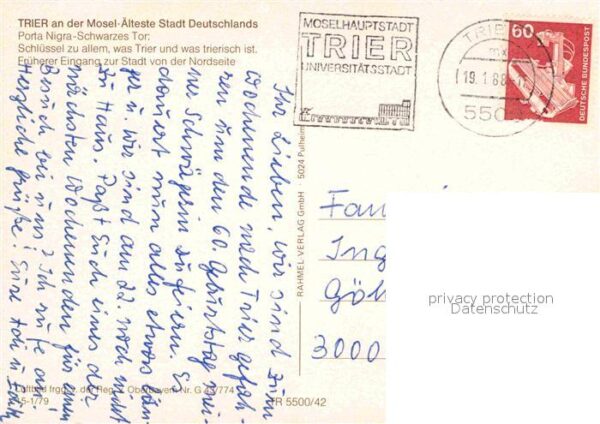 TRIER an der Mosel-Älteste Stadt Deutschlands
Porta Nigra-Schwarzes Tor:
Schlüssel zu allem, was Trier und was trierisch ist.
Früherer Eingang zur Stadt von der Nordseite
MOSELHAUPTSTADT
TRIER
UNIVERSITÄTSSTADT
TRIER
mx
19.1.88
550
60
DEUTSCHE BUNDESPOST
Ihr Lieben, wir sind zum
Wochenende nach Trier gefah-
ren um den 60. Geburtstag mei-
ner Schwägerin zu feiern. Es
dauert nun alles etwas län-
ger u. wir sind am 22. noch nicht
zu Haus. Paßt Euch eines der
nächsten Wochenenden für einen
Besuch bei uns? Ich rufe an.
Herzliche Grüße! Eure
RAHMEL-VERLAG GmbH · 5024 Pulheim
Fam
Ing
Göh
3000
privacy protection
Datenschutz
Luftbild frgg. v. der Reg. v. Oberbayern Nr. G 43/774
15-1/79
TR 5500/42